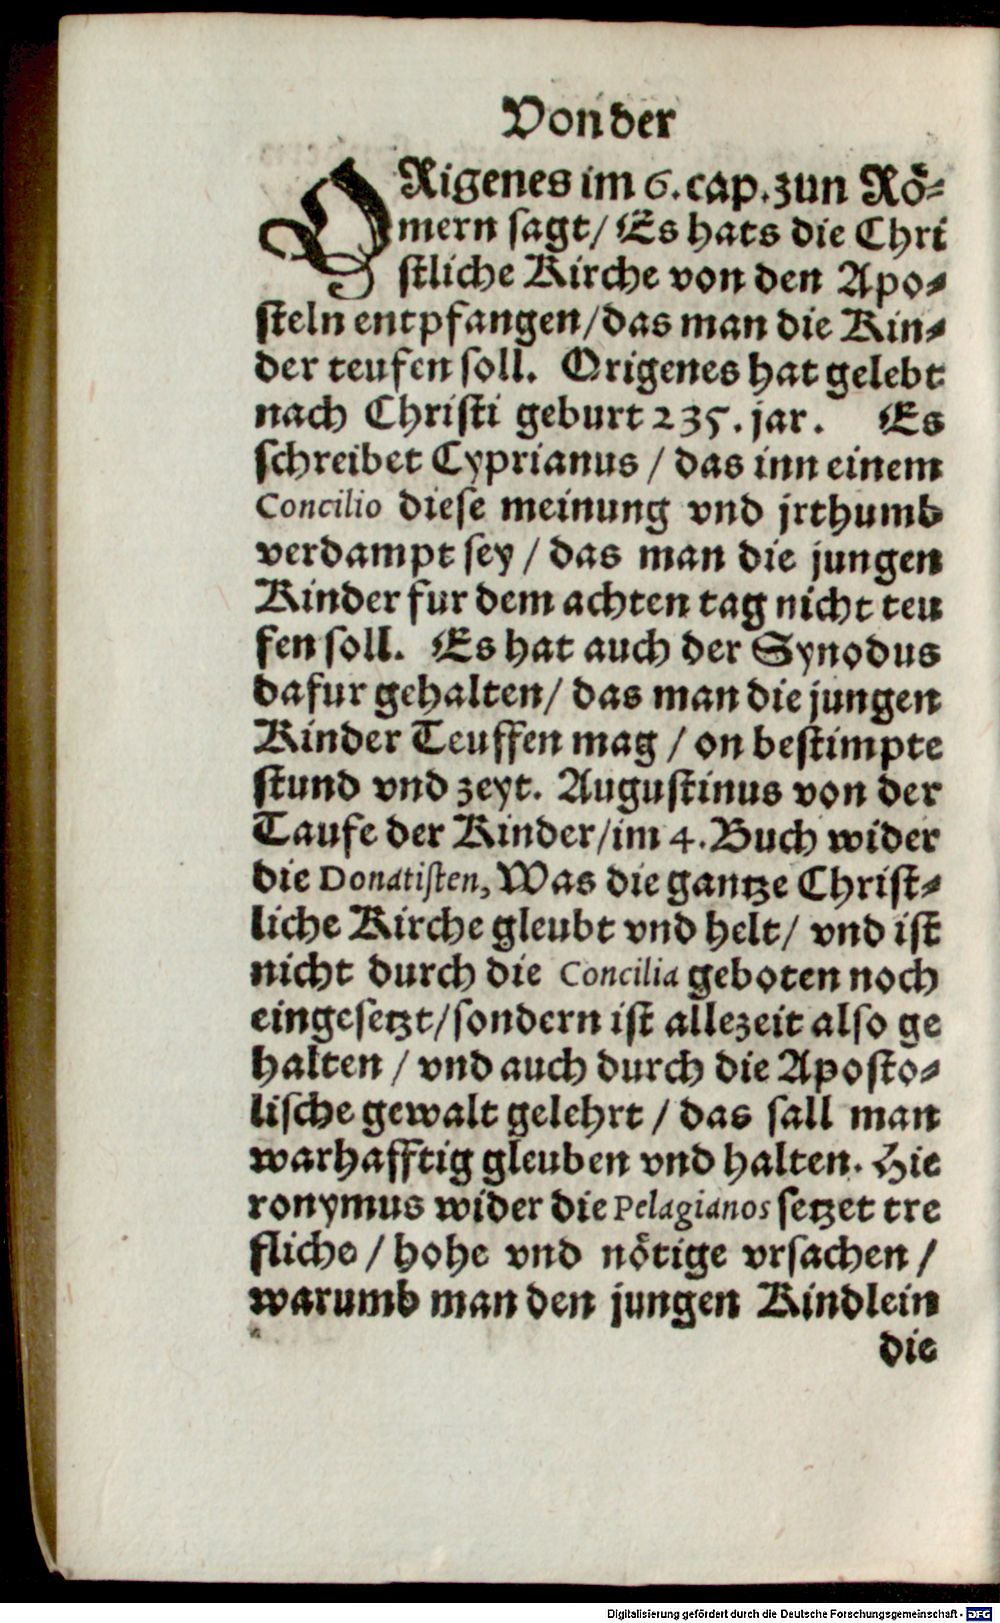 Von der
ORigenes im 6. cap. zun Rö-
mern sagt/ Es hats die Chri
stliche Kirche von den Apo-
steln entpfangen/das man die Kin-
der teufen soll. Origenes hat gelebt
nach Christi geburt 235. jar. Es
schreibet Cyprianus / das inn einem
Concilio diese meinung vnd jrthumb
verdampt sey / das man die jungen
Kinder fur dem achten tag nicht teu
fen soll. Es hat auch der Synodus
dafur gehalten/ das man die jungen
Kinder Teuffen mag / on bestimpte
stund vnd zeyt. Augustinus von der
Taufe der Kinder/im 4. Buch wider
die Donatisten, Was die gantze Christ-
liche Kirche gleubt vnd helt/ vnd ist
nicht durch die Concilia geboten noch
eingesetzt/sondern ist allezeit also ge
halten / vnd auch durch die Aposto-
lische gewalt gelehrt / das sall man
warhafftig gleuben vnd halten. Hie
ronymus wider die Pelagianos setzet tre
fliche / hohe vnd nötige vrsachen /
warumb man den jungen Kindlein
die
Digitalisierung gefördert durch die Deutsche Forschungsgemeinschaft - DFG